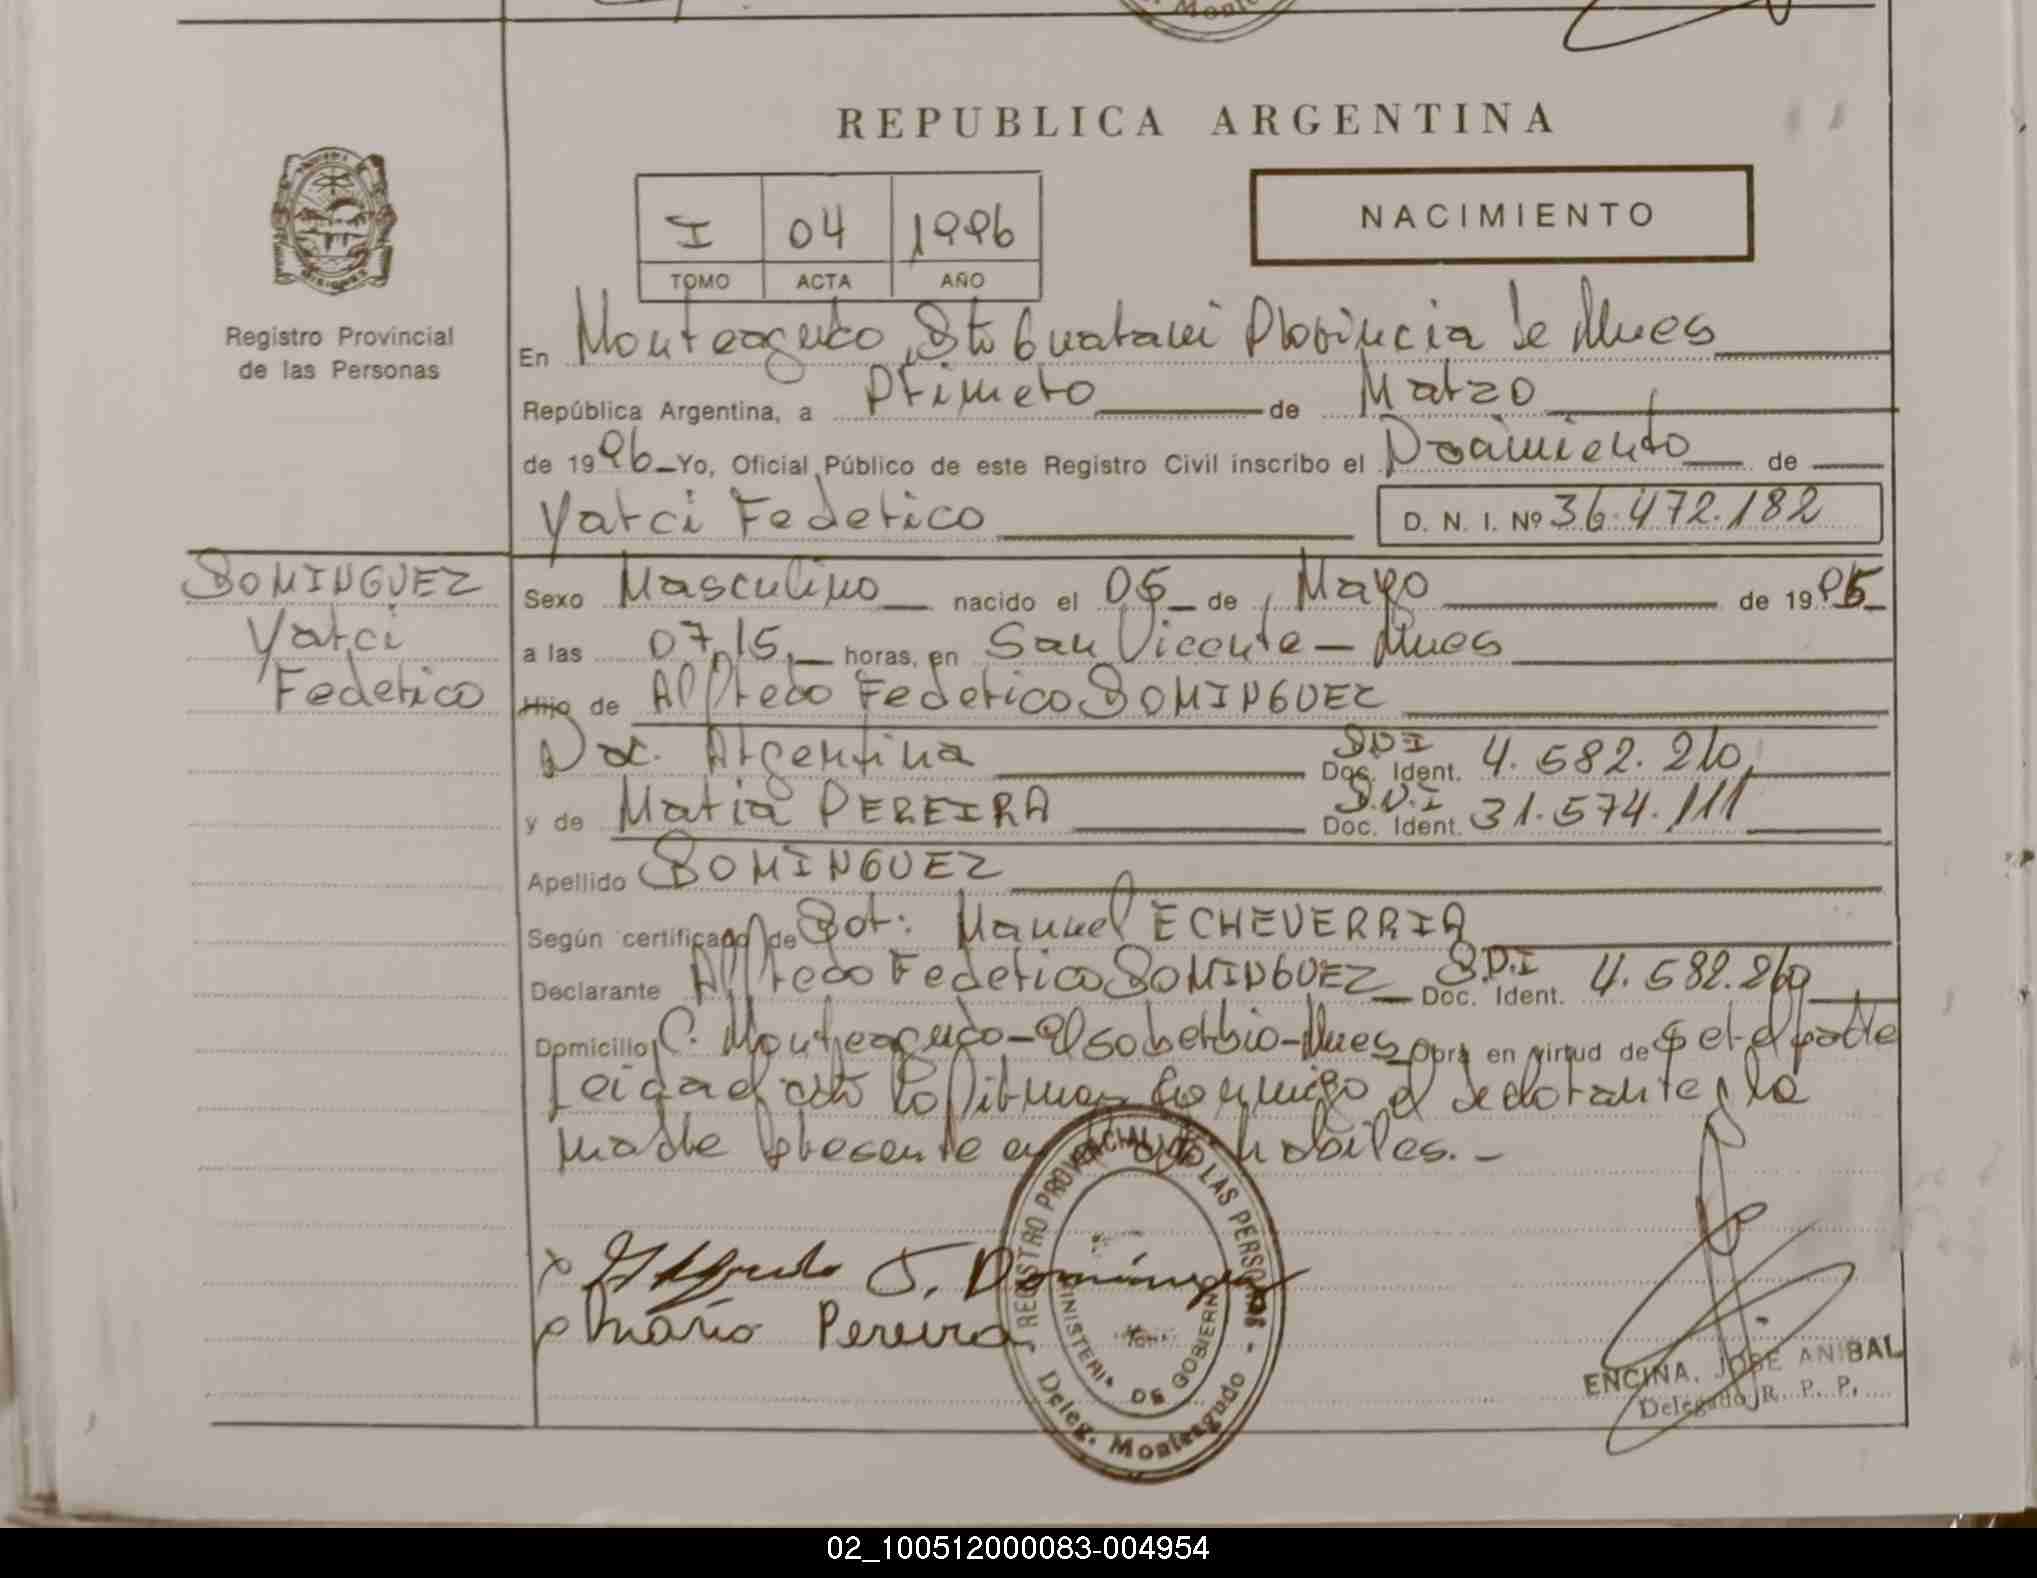 REPUBLICA ARGENTINA
I 04 1996
TOMO ACTA AÑO
NACIMIENTO
Registro Provincial
de las Personas
En Monteagudo, Dto Guarani Provincia de Mnes
República Argentina, a Primero de Marzo
de 1996 Yo, Oficial Público de este Registro Civil inscribo el Nacimiento de
Yarci Federico D. N. I. Nº 36.472.182
DOMINGUEZ
Yarci
Federico
Sexo Masculino nacido el 05 de Mayo de 1995
a las 07,15 horas, en San Vicente - Mnes
Hijo de Alfredo Federico DOMINGUEZ
Nac. Argentina D.N.I Doc. Ident. 4.582.210
y de Maria PEREIRA D.N.I Doc. Ident. 31.574.111
Apellido DOMINGUEZ
Según certificado de Dor: Manuel ECHEVERRIA
Declarante Alfredo Federico DOMINGUEZ D.N.I Doc. Ident. 4.582.260
Domicilio C. Monteagudo - El soberbio - Mnes Obra en virtud de ser el padre
Leida el acta la firman conmigo el declarante y la
madre presente en habiles. -
x Alfredo F. Dominguez
x Maria Pereira
REGISTRO PROVINCIAL DE LAS PERSONAS
MINISTERIO DE GOBIERNO
Deleg. Monteagudo
ENCINA, JOSE ANIBAL
Delegado R. P. P.
02_100512000083-004954